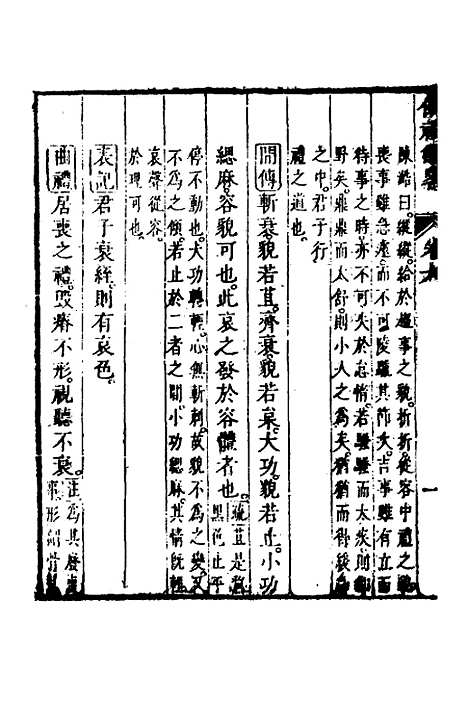 陳澔曰。縱縱。給於趨事之貌。折折。從容中禮之貌。
喪事雖急遽。而不可陵躐其節矣。吉事雖有立而
待事之時。亦不可失於怠惰。若騷騷而太疾。則鄙
野矣。鼎鼎而太舒。則小人之為矣。猶猶而得緩急
之中。君子行
禮之道也。
間傳斬衰貌若苴。齊衰貌若枲。大功貌若止。小功
緦麻。容貌可也。此哀之發於容體者也。疏苴是
黑色止平
停不動也。大功轉輕。心無斬刺。故貌不為之變。又
不為之傾。若止於二者之間。小功緦麻。其情既輕
哀聲從容。
於理可也。
表記君子衰絰。則有哀色。
曲禮居喪之禮。毀瘠不形。視聽不衰。
為其廢
形謂骨
卷九
一